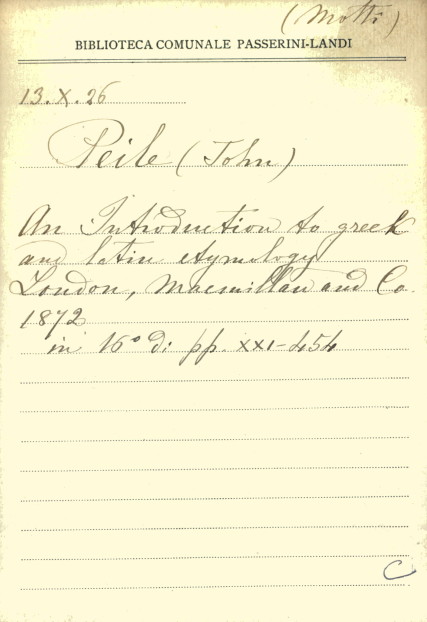 (Motti)
BIBLIOTECA COMUNALE PASSERINI-LANDI
13. X. 26
Peile (John)
An Introduction to greek
and latin etymology
London, Macmillan and Co.
1872
in 16° di pp. XXI-454
C